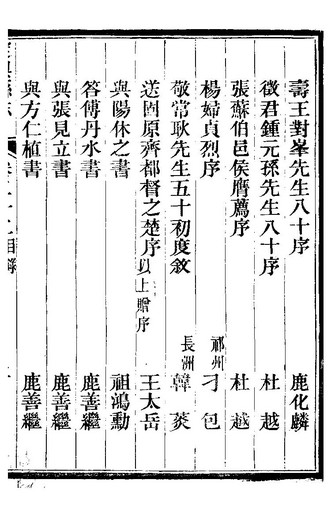 壽王對峯先生八十序 鹿化麟
徵君鍾元孫先生八十序 杜越
張蘇伯邑侯膺薦序 杜越
楊婦貞烈序 祁州 刁包
敬常耿先生五十初度敘 長洲 韓菼
送固原齊都督之楚序 以上贈序 王太岳
與陽休之書 祖鴻勳
答傅丹水書 鹿善繼
與張見立書 鹿善繼
與方仁植書 鹿善繼